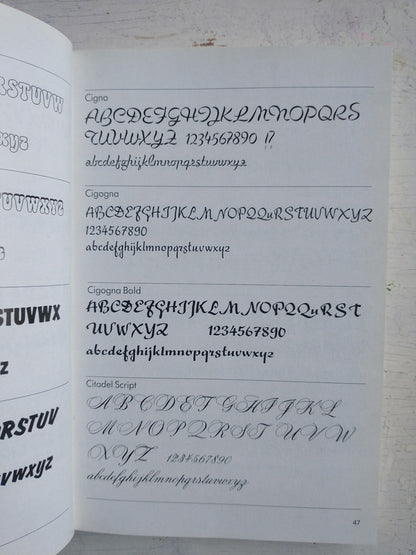 STUVW
xyz
UVWXYZ
STUVWX
z
RSTUV
vwxyz
Cigno
ABCDEFGHIJKLMNOPQRS
TUVWXYZ 1234567890 !?
abcdefghijklmnopqrstuvwxyz
Cigogna
ABCDEFGHIJKLMNOPQQuRSTUVWXYZ
1234567890
abcdefghijklmnopqrstuvwxyz
Cigogna Bold
ABCDEFGHIJKLMNOPQQuRST
UVWXYZ 1234567890
abcdefghijklmnopqrstuvwxyz
Citadel Script
ABCDEFGHIJKL
MNOPQRSTUVW
XYZ 1234567890
abcdefghijklmnopqrstuvwxyz
47